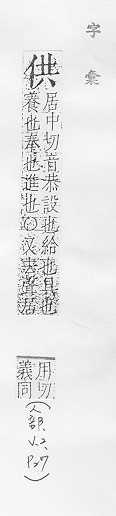 字彙
供
居中切音恭設也給也具也
養也奉也進也〇又去聲居
用切
義同
(人部.
V.2,
P.27)